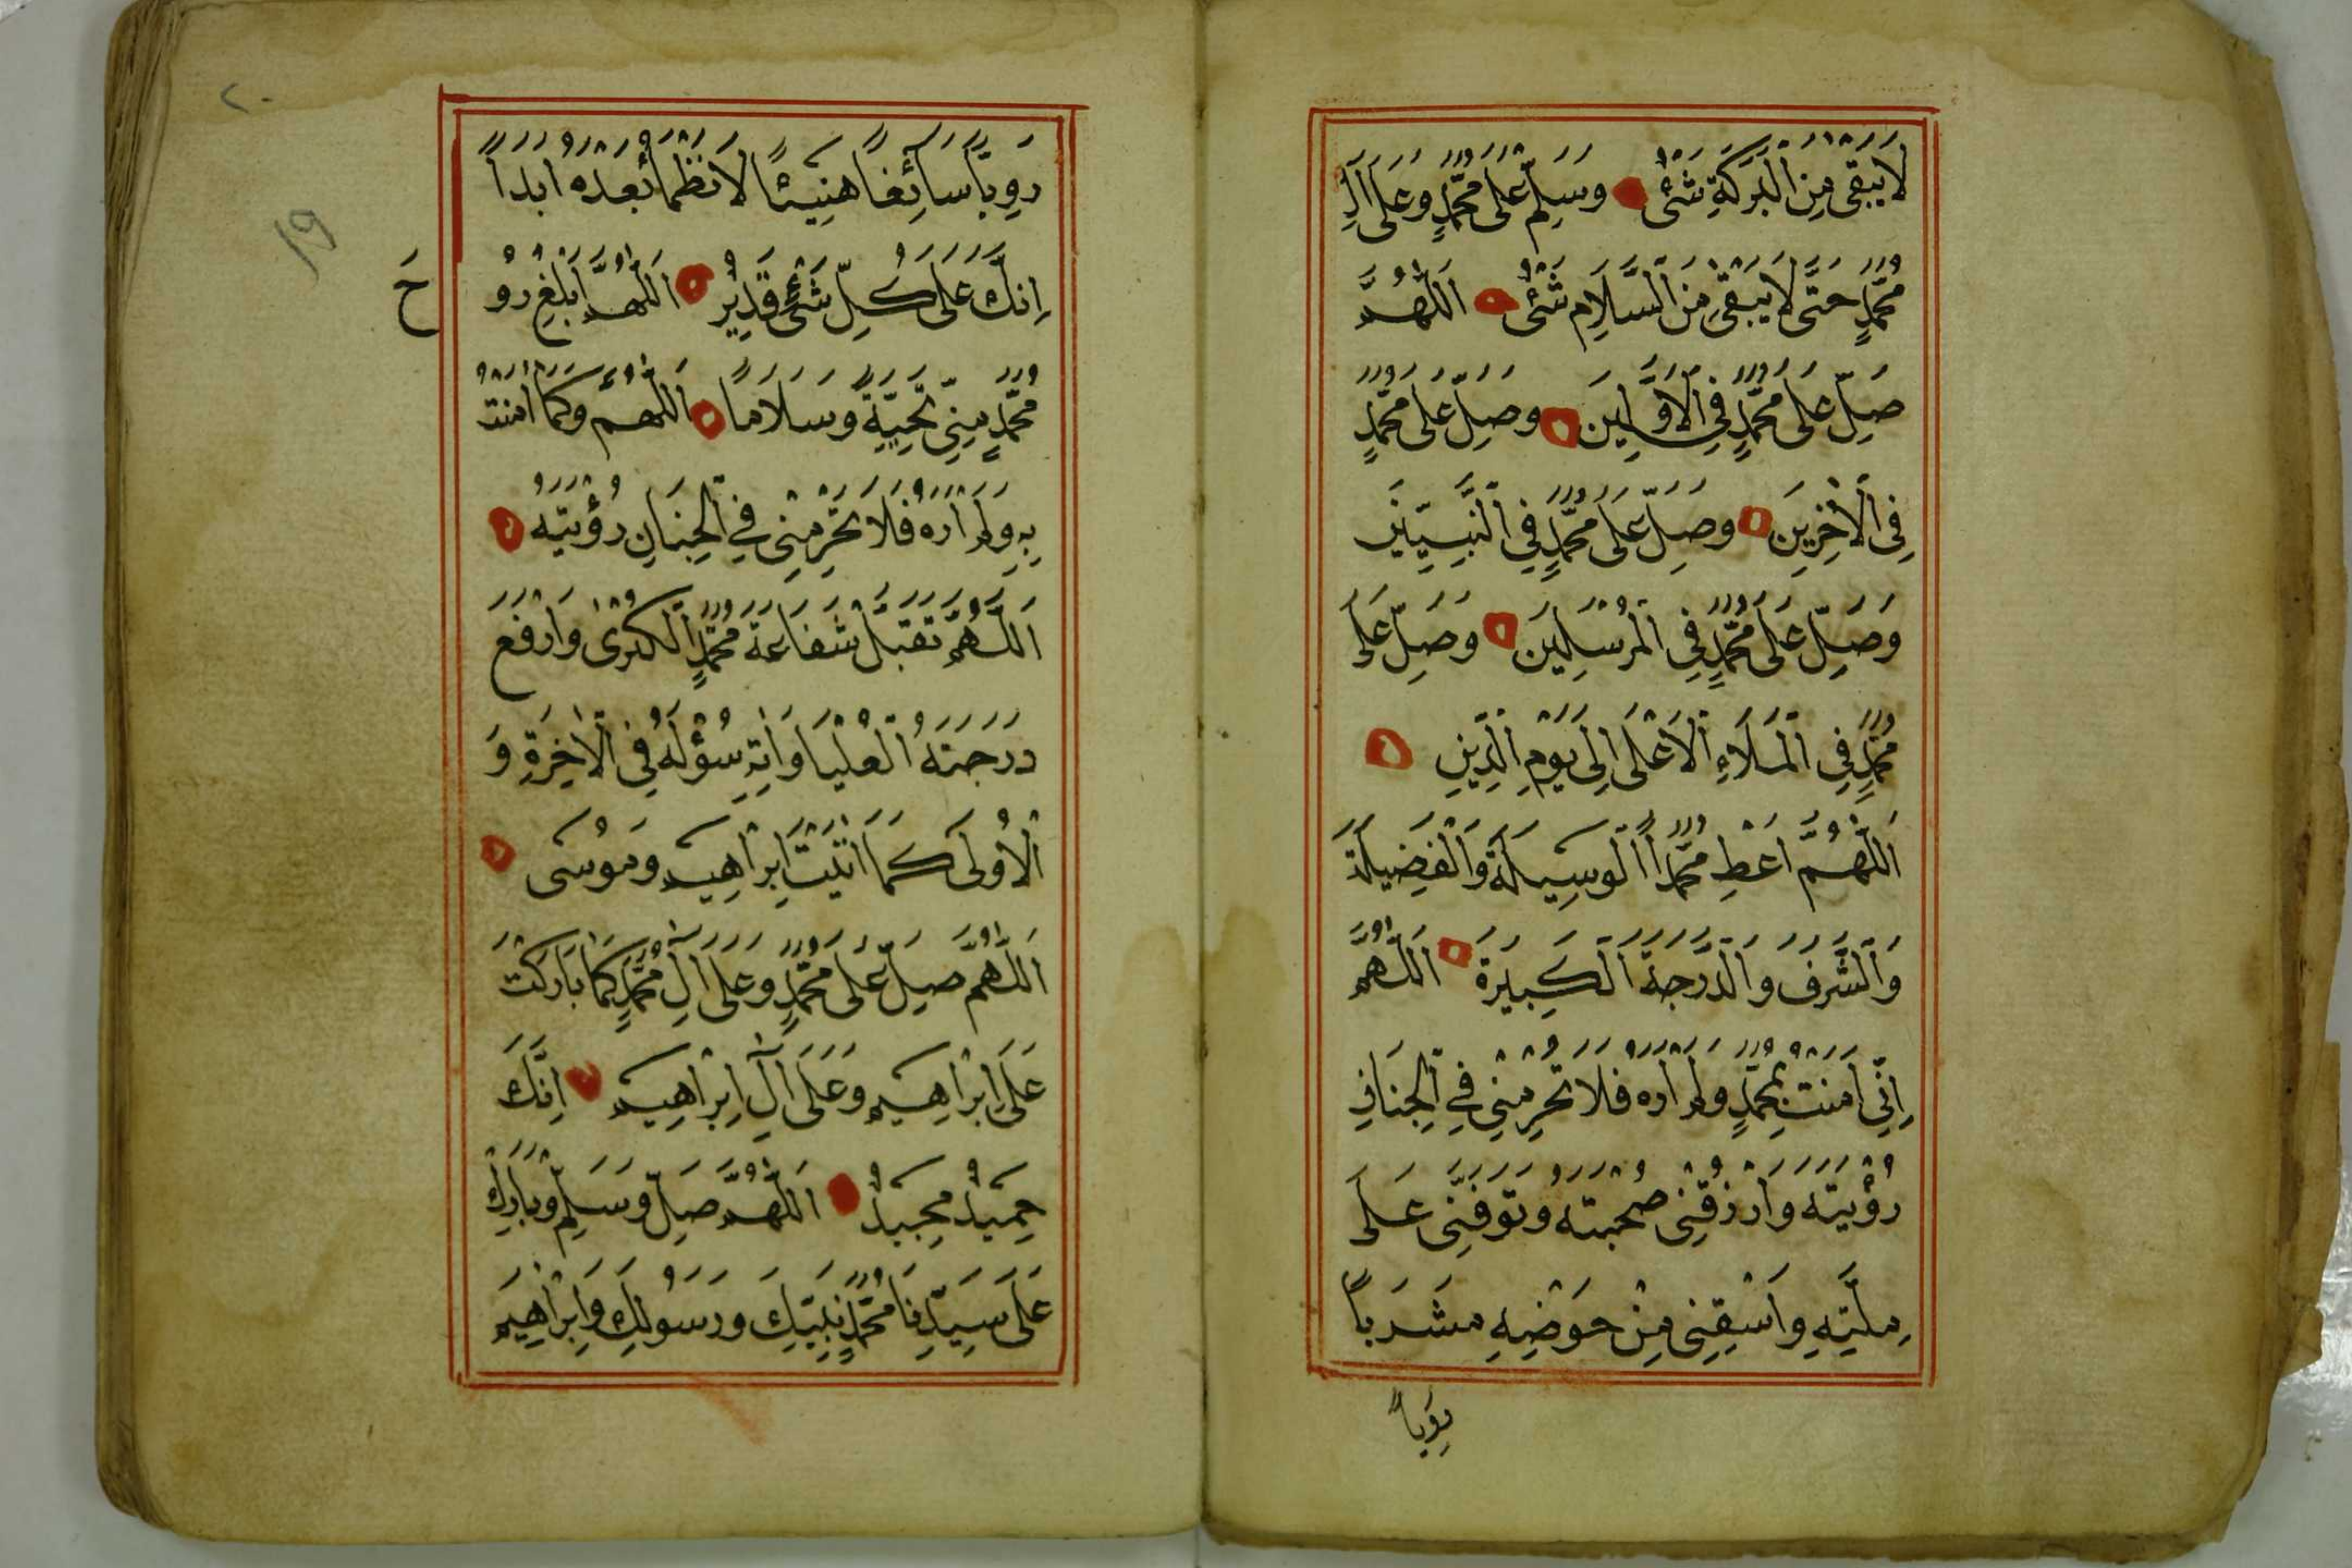 لَا يَبْقَى مِنَ الْبَرَكَةِ شَىْءٌ وَسَلِّمْ عَلَى مُحَمَّدٍ وَعَلَى اٰلِ
مُحَمَّدٍ حَتَّى لَا يَبْقَى مِنَ السَّلَامِ شَىْءٌ اَللّٰهُمَّ
صَلِّ عَلَى مُحَمَّدٍ فِى الْاَوَّلِينَ وَصَلِّ عَلَى مُحَمَّدٍ
فِى الْاٰخِرِينَ وَصَلِّ عَلَى مُحَمَّدٍ فِى النَّبِيِّينَ
وَصَلِّ عَلَى مُحَمَّدٍ فِى الْمُرْسَلِينَ وَصَلِّ عَلَى
مُحَمَّدٍ فِى الْمَلَاءِ الْاَعْلَى اِلَى يَوْمِ الدِّينِ
اَللّٰهُمَّ اَعْطِ مُحَمَّدًا الْوَسِيلَةَ وَالْفَضِيلَةَ
وَالشَّرَفَ وَالدَّرَجَةَ الْكَبِيرَةَ اَللّٰهُمَّ
اِنِّى اٰمَنْتُ بِمُحَمَّدٍ وَلَمْ اَرَهُ فَلَا تَحْرِمْنِى فِى الْجِنَانِ
رُؤْيَتَهُ وَارْزُقْنِى صُحْبَتَهُ وَتَوَفَّنِى عَلَى
مِلَّتِهِ وَاَسْقِنِى مِنْ حَوْضِهِ مَشْرَبًا
رَوِيًّا
٢٠
١٩
رَوِيًّا سَائِغًا هَنِيئًا لَا نَظْمَأُ بَعْدَهُ اَبَدًا
اِنَّكَ عَلَى كُلِّ شَىْءٍ قَدِيرٌ اَللّٰهُمَّ اَبْلِغْ رُوْ
حَ
مُحَمَّدٍ مِنِّى تَحِيَّةً وَسَلَامًا اَللّٰهُمَّ وَكَمَا اٰمَنْتُ
بِهِ وَلَمْ اَرَهُ فَلَا تَحْرِمْنِى فِى الْجِنَانِ رُؤْيَتَهُ
اَللّٰهُمَّ تَقَبَّلْ شَفَاعَةَ مُحَمَّدٍ الْكُبْرٰى وَارْفَعْ
دَرَجَتَهُ الْعُلْيَا وَاٰتِهِ سُؤْلَهُ فِى الْاٰخِرَةِ وَ
الْاُولَى كَمَا اٰتَيْتَ اِبْرَاهِيمَ وَمُوسَى
اَللّٰهُمَّ صَلِّ عَلَى مُحَمَّدٍ وَعَلَى اٰلِ مُحَمَّدٍ كَمَا بَارَكْتَ
عَلَى اِبْرَاهِيمَ وَعَلَى اٰلِ اِبْرَاهِيمَ اِنَّكَ
حَمِيدٌ مَجِيدٌ اَللّٰهُمَّ صَلِّ وَسَلِّمْ وَبَارِكْ
عَلَى سَيِّدِنَا مُحَمَّدٍ نَبِيِّكَ وَرَسُولِكَ وَاِبْرَاهِيمَ